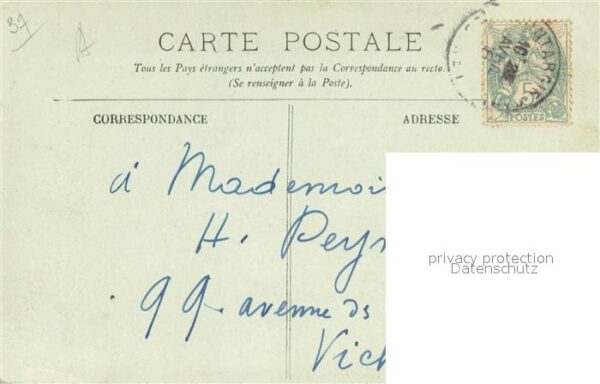 37
A
CARTE POSTALE
Tous les Pays étrangers n'acceptent pas la Correspondance au recto.
(Se renseigner à la Poste).
CORRESPONDANCE
ADRESSE
5
POSTES
à Mademoi
H. Peyr
99 avenue ds
Vich
privacy protection
Datenschutz